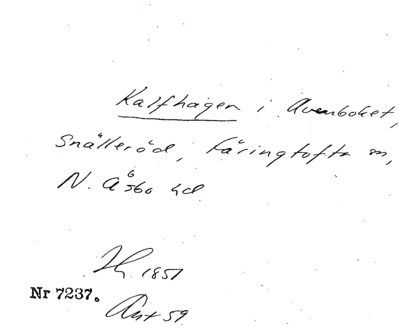 Kalfhagen i Avenboket,
Snälleröd, Färingtofta sn,
N. Åsbo hd
1851
Nr 7237.
Ant 59